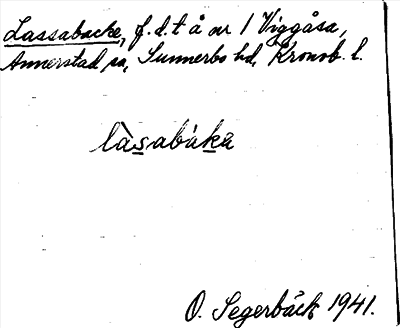 Lassabacke, f.d.t å nr 1 Viggåsa,
Annerstad sn, Sunnerbo hd, Kronob. l.
làsabákă
O. Segerbäck 1941.